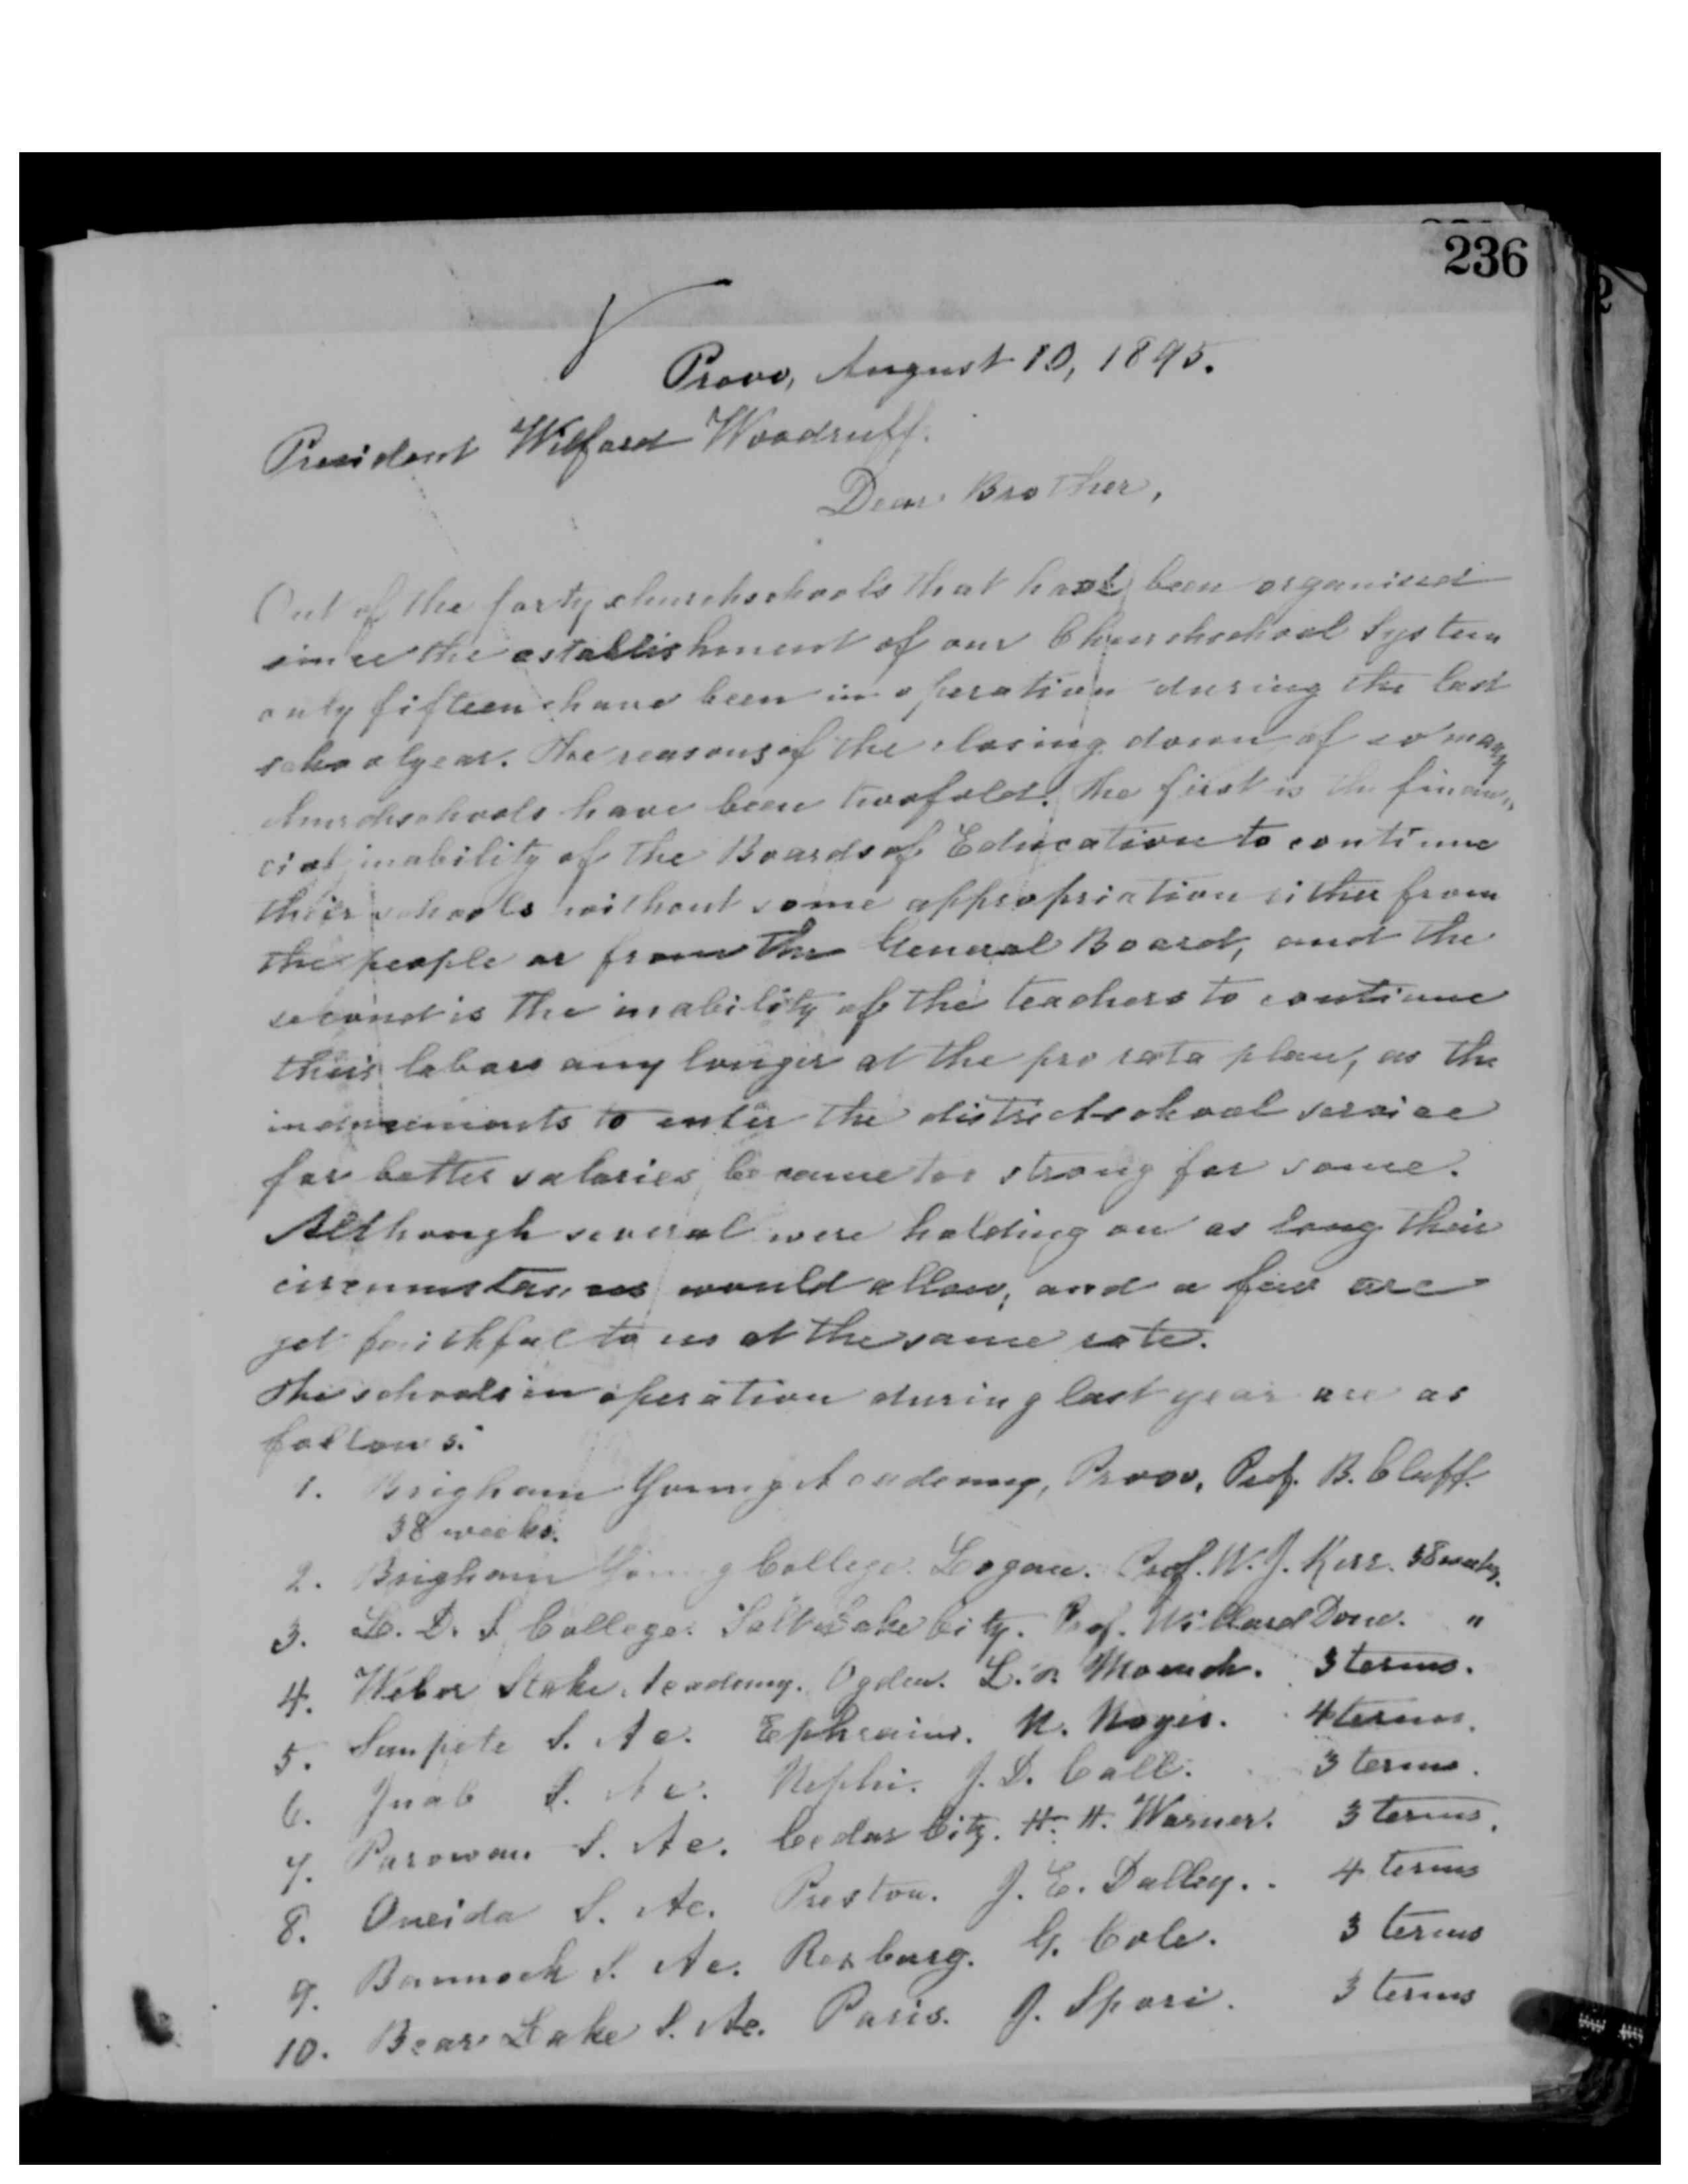 236
Provo, August 10, 1895.
President Wilford Woodruff.
Dear Brother,
Out of the forty churchschools that have been organized
since the establishment of our Churchschool System
only fifteen have been in operation during the last
schoolyear. The reasons of the closing down of so many
churchschools have been twofold. The first is the finan-
cial inability of the Boards of Education to continue
their schools without some appropriation either from
the people or from the General Board, and the
second is the inability of the teachers to continue
their labors any longer at the pro rata plan, as the
inducements to enter the district-school service
for better salaries became too strong for some.
Although several were holding on as long their
circumstances would allow, and a few are
yet faithful to us at the same rate.
The schools in operation during last year are as
follows:
1. Brigham Young Academy, Provo, Prof. B. Cluff.
38 weeks.
2. Brigham Young College. Logan. Prof. W. J. Kerr. 38 weeks.
3. L. D. S. College. Salt Lake City. Prof. Willard Done. "
4. Weber Stake Academy. Ogden. L. F. Moench. 3 terms.
5. Sanpete S. Ac. Ephraim. N. Noyes. 4 terms.
6. Juab S. Ac. Nephi. J. D. Call. 3 terms.
7. Parowan S. Ac. Cedar City. H. H. Warner. 3 terms.
8. Oneida S. Ac. Preston. J. E. Dalley. 4 terms
9. Bannock S. Ac. Rexburg. G. Cole. 3 terms
10. Bear Lake S. Ac. Paris. J. Spori. 3 terms